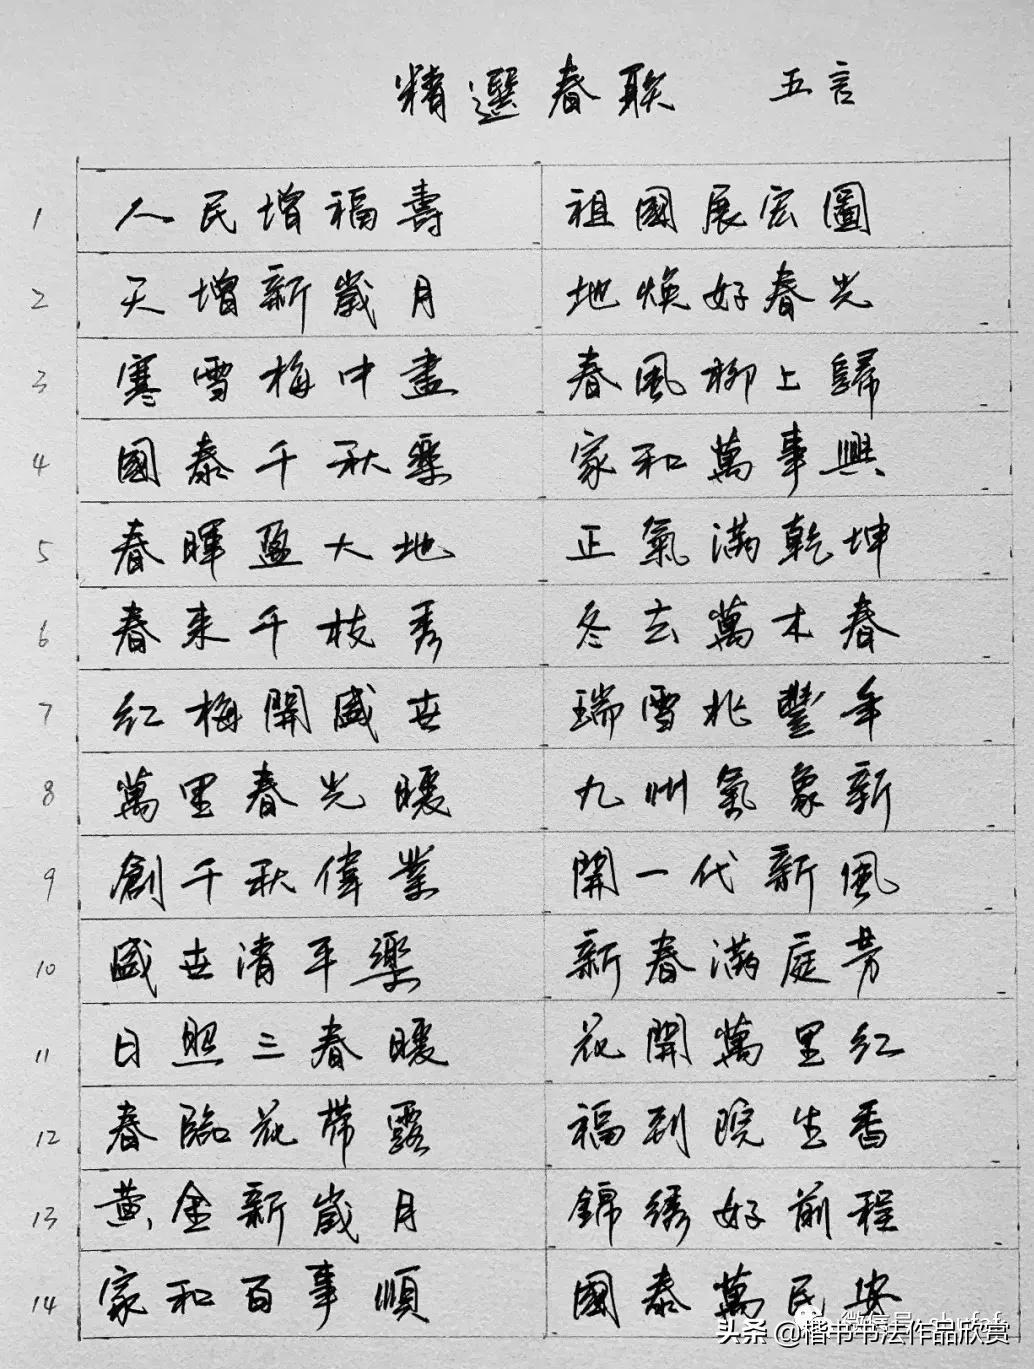 精選春联 五言
1 人民增福壽 祖國展宏圖
2 天增新歲月 地焕好春光
3 寒雪梅中盡 春風柳上歸
4 國泰千秋樂 家和萬事興
5 春暉盈大地 正氣滿乾坤
6 春来千枝秀 冬去萬木春
7 红梅開盛世 瑞雪兆豐年
8 萬里春光暖 九州氣象新
9 創千秋偉業 開一代新風
10 盛世清平樂 新春滿庭芳
11 日照三春暖 花開萬里红
12 春臨花带露 福到院生香
13 黄金新歲月 錦绣好前程
14 家和百事順 國泰萬民安
头条 @楷书书法作品欣赏